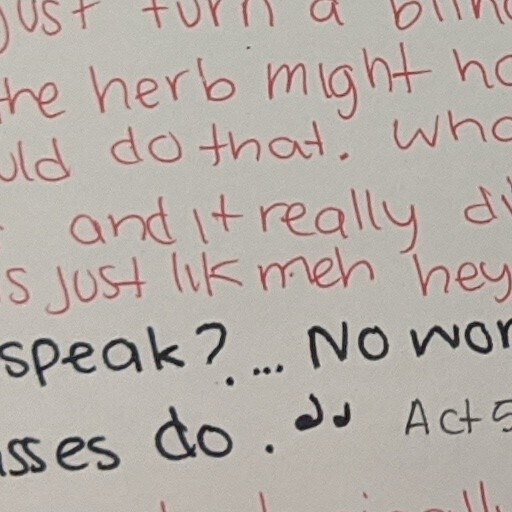 just turn a blin
the herb might ho
uld do that. Who
and it really di
s just lik meh hey
speak?... No wor
sses do." Act 5